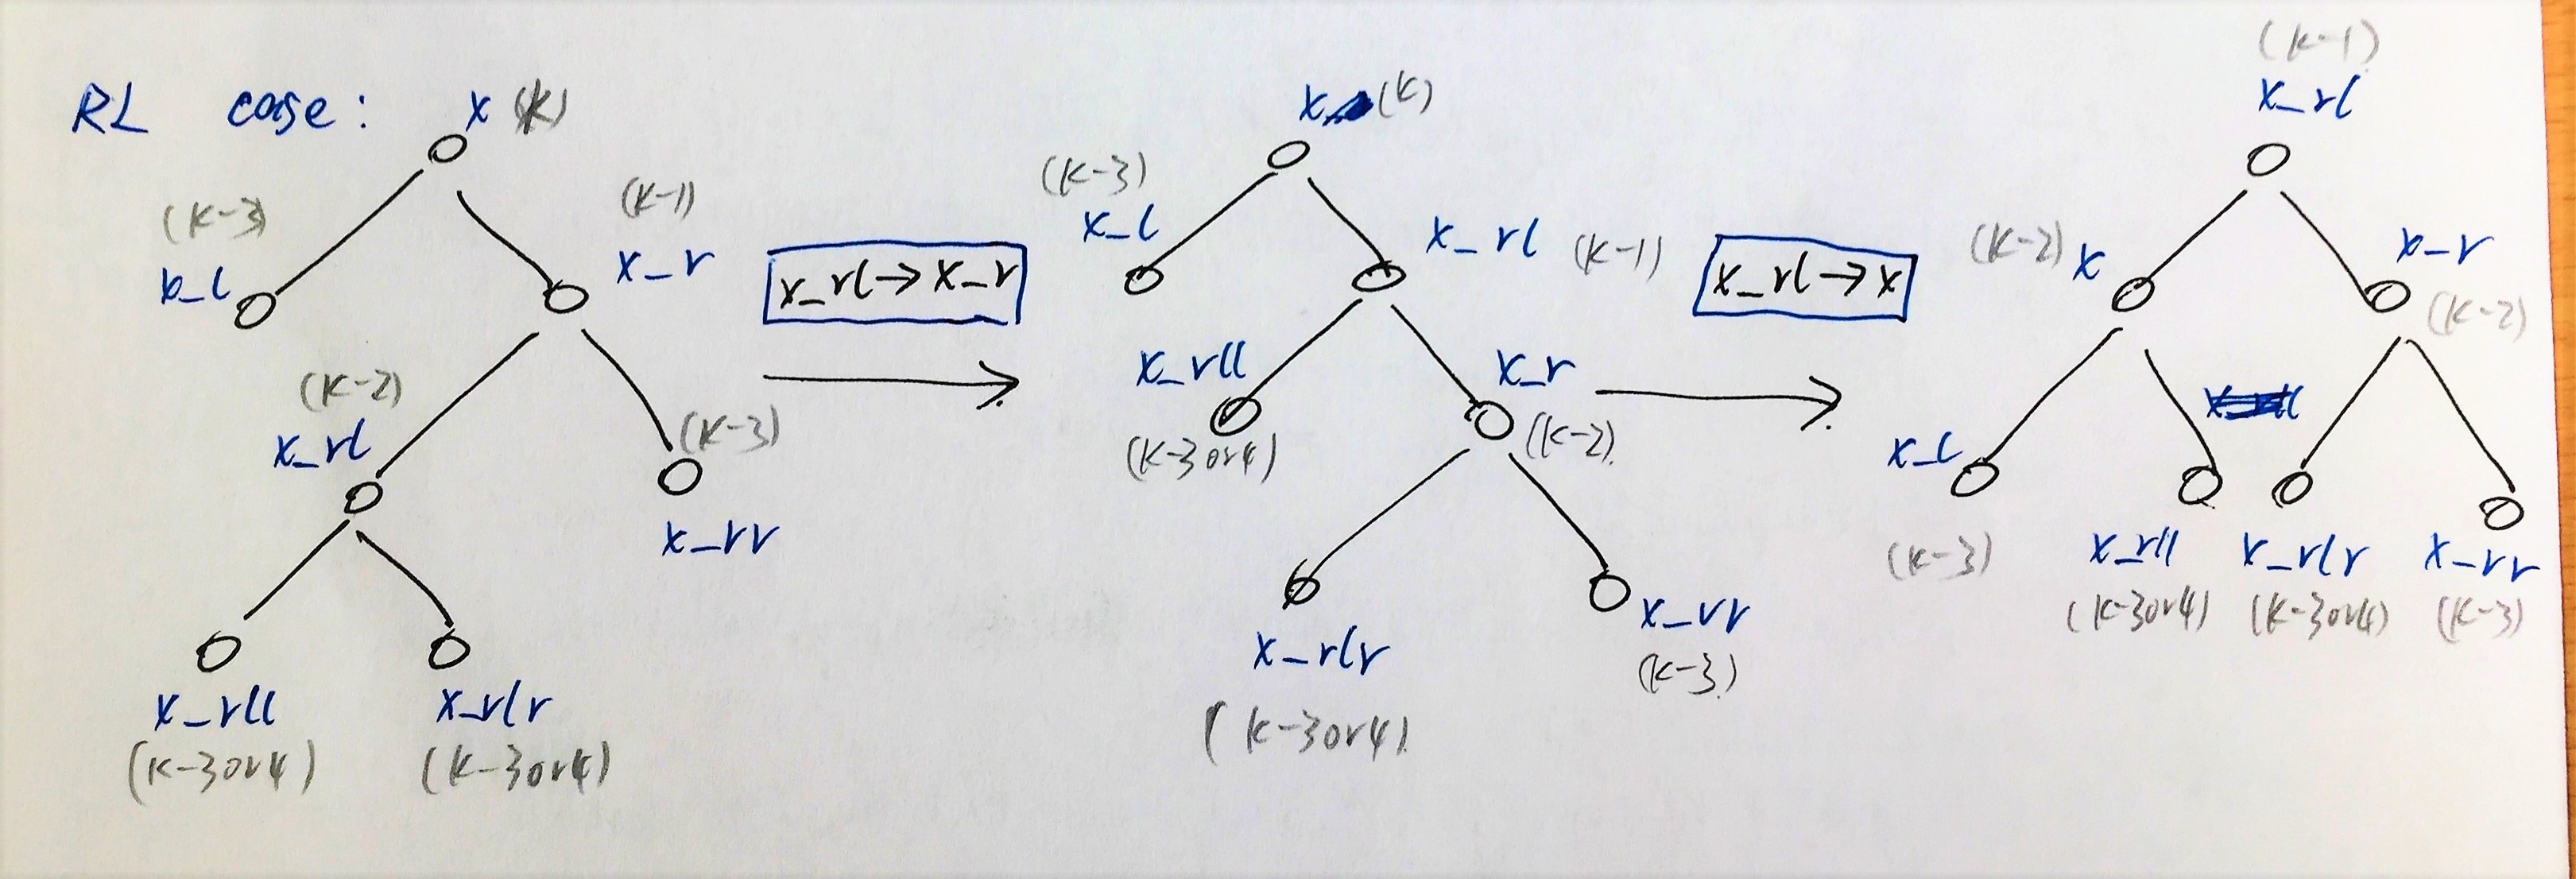 RL case:
x (k)
(k-3)
x_l
(k-1)
x_r
(k-2)
x_rl
(k-3)
x_rr
x_rll
(k-3or4)
x_rlr
(k-3or4)
x_rl→x_r
x (k)
(k-3)
x_l
x_rl (k-1)
x_rll
(k-3or4)
x_r
(k-2)
x_rlr
(k-3or4)
x_rr
(k-3)
x_rl→x
(k-1)
x_rl
(k-2) x
x_r
(k-2)
x_l
(k-3)
x_rll
(k-3or4)
x_rlr
(k-3or4)
x_rr
(k-3)